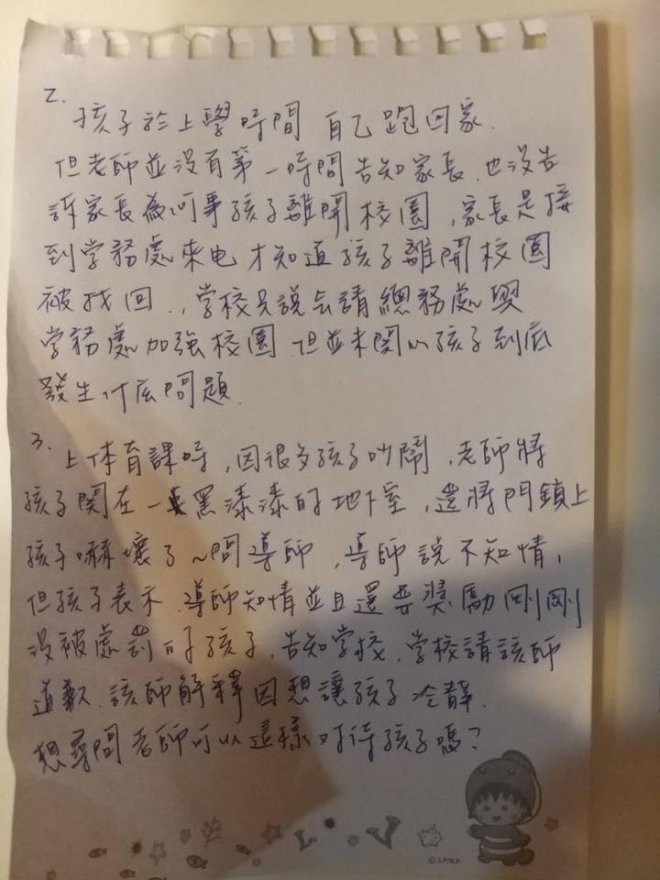 2.
孩子於上學時間 自己跑回家.
但老師並沒有第一時間告知家長.也沒告
訴家長為何事孩子離開校園,家長是接
到学務處來电才知道孩子離開校園
被找回.,学校只說会請總務處與
学務處加強校園.但並未關心孩子到底
發生什庅問題.
3.
上体育課時,因很多孩子吵鬧,老師將
孩子関在一黑漆漆的地下室,還將門鎖上
孩子嚇壞了~問導師,導師說不知情,
但孩子表示.導師知情並且還要獎勵剛剛
沒被處罰的孩子.告知学校.学校請該師
道歉.該師解釋因想讓孩子冷靜.
想尋問老師可以這樣对待孩子嗎?